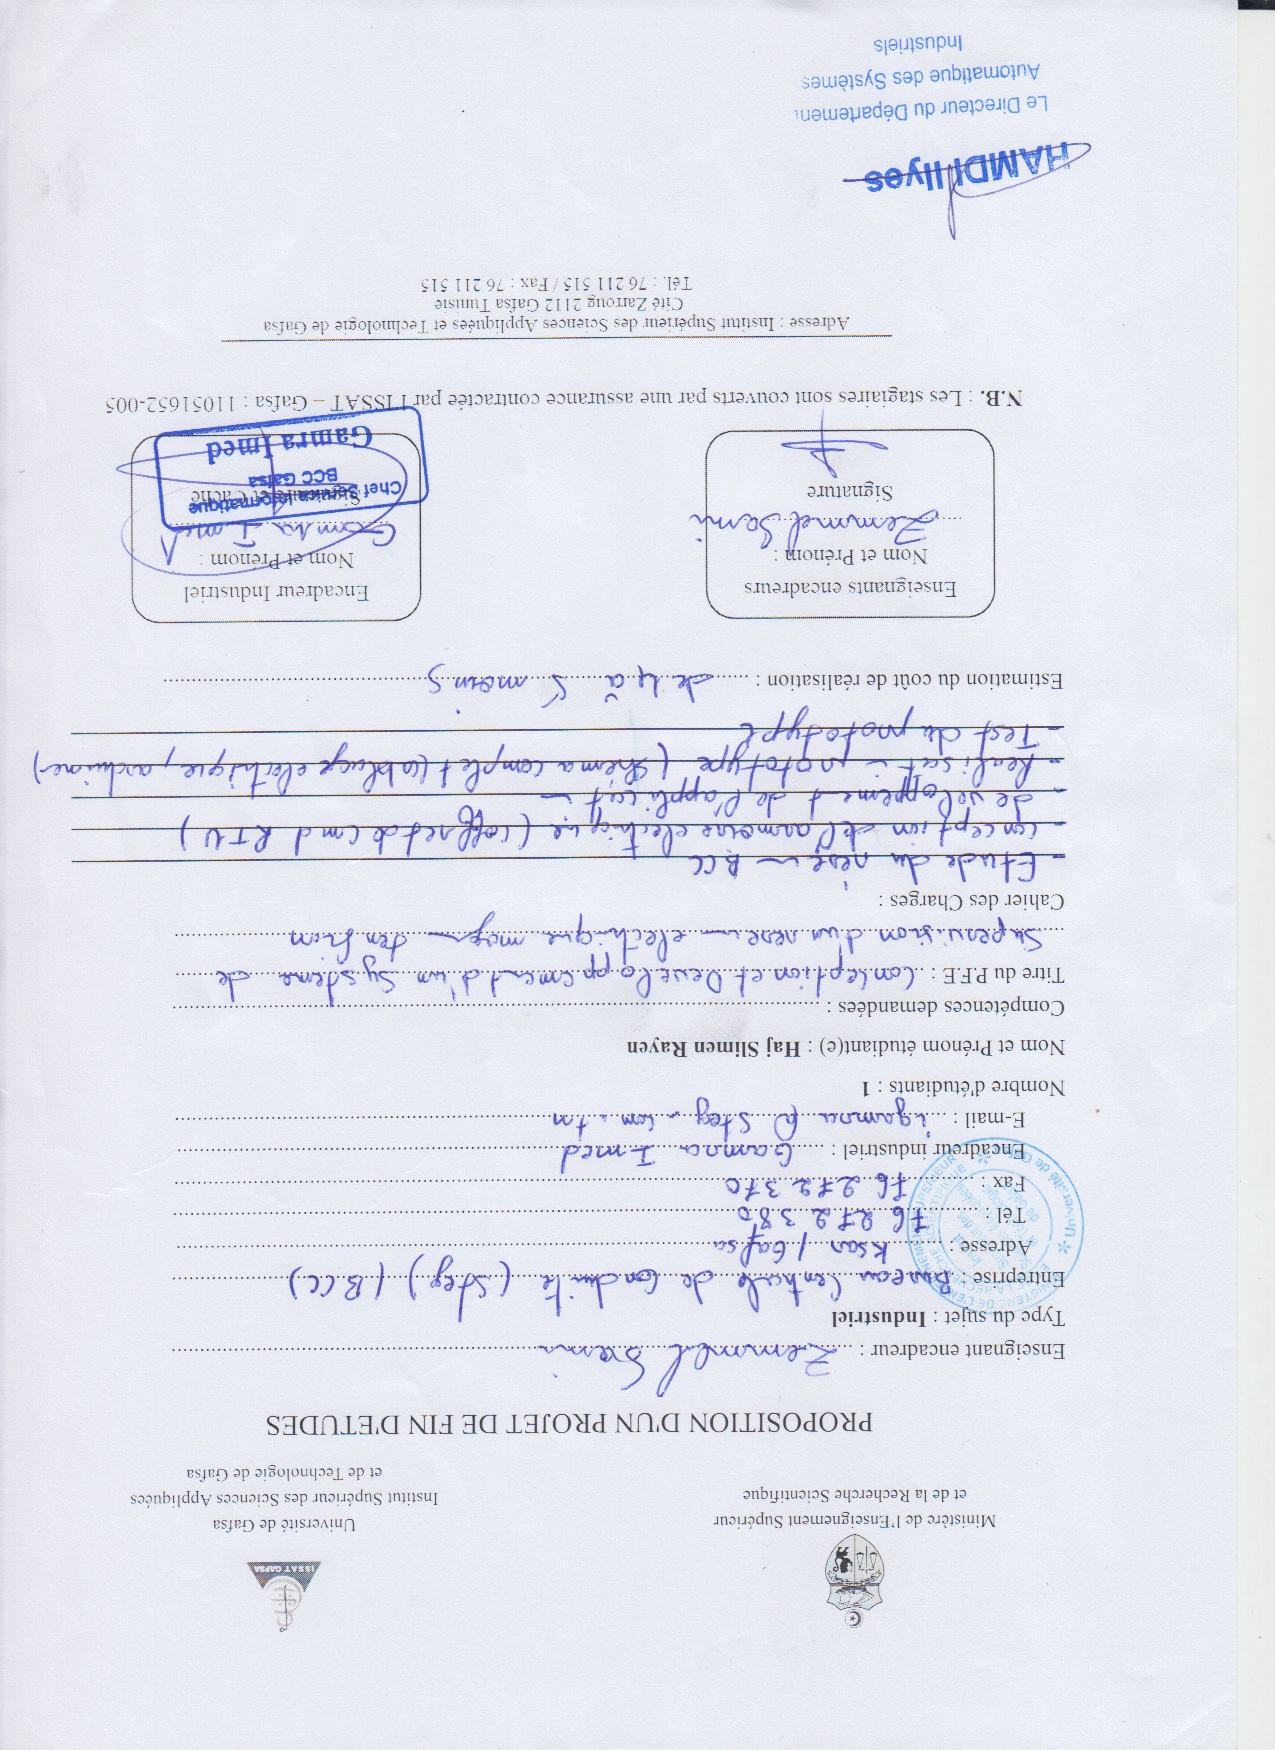 Ministère de l'Enseignement Supérieur
et de la Recherche Scientifique
ISSAT GAFSA
Université de Gafsa
Institut Supérieur des Sciences Appliquées
et de Technologie de Gafsa
PROPOSITION D'UN PROJET DE FIN D'ETUDES
Enseignant encadreur : Zemmel Sami
Type du sujet : Industriel
Entreprise : Bureau Centrale de Conduite (Steg) / BCC)
Adresse : Ksar / Gafsa
Tél : 76 272 380
Fax : 76 272 370
Encadreur industriel : Gamra Imed
E-mail : igamra @ Steg . com . tn
Nombre d'étudiants : 1
Nom et Prénom étudiant(e) : Haj Slimen Rayen
Compétences demandées :
Titre du P.F.E : Conception et Developpement d'un Systeme de
Supervision d'un reseau electrique moyenne tension
Cahier des Charges :
- Etude du réseau BCC
- conception de l'armoire electrique (coffret de Cmd RTU)
- développement de l'application
- Realisation prototype (shéma complet (cablage electrique, arduino)
- Test du prototype
Estimation du coût de réalisation : de 4 à 5 mois
Enseignants encadreurs
Nom et Prénom :
Zemmel Sami
Signature
Encadreur Industriel
Nom et Prénom :
Gamra Imed
Signature et Cachet
Chef Service Informatique
BCC Gafsa
Gamra Imed
N.B. : Les stagiaires sont couverts par une assurance contractée par l ISSAT – Gafsa : 11051652-005
Adresse : Institut Supérieur des Sciences Appliquées et Technologie de Gafsa
Cité Zarroug 2112 Gafsa Tunisie
Tél. : 76 211 515 / Fax : 76 211 515
HAMDI Ilyes
Le Directeur du Département
Automatique des Systèmes
Industriels